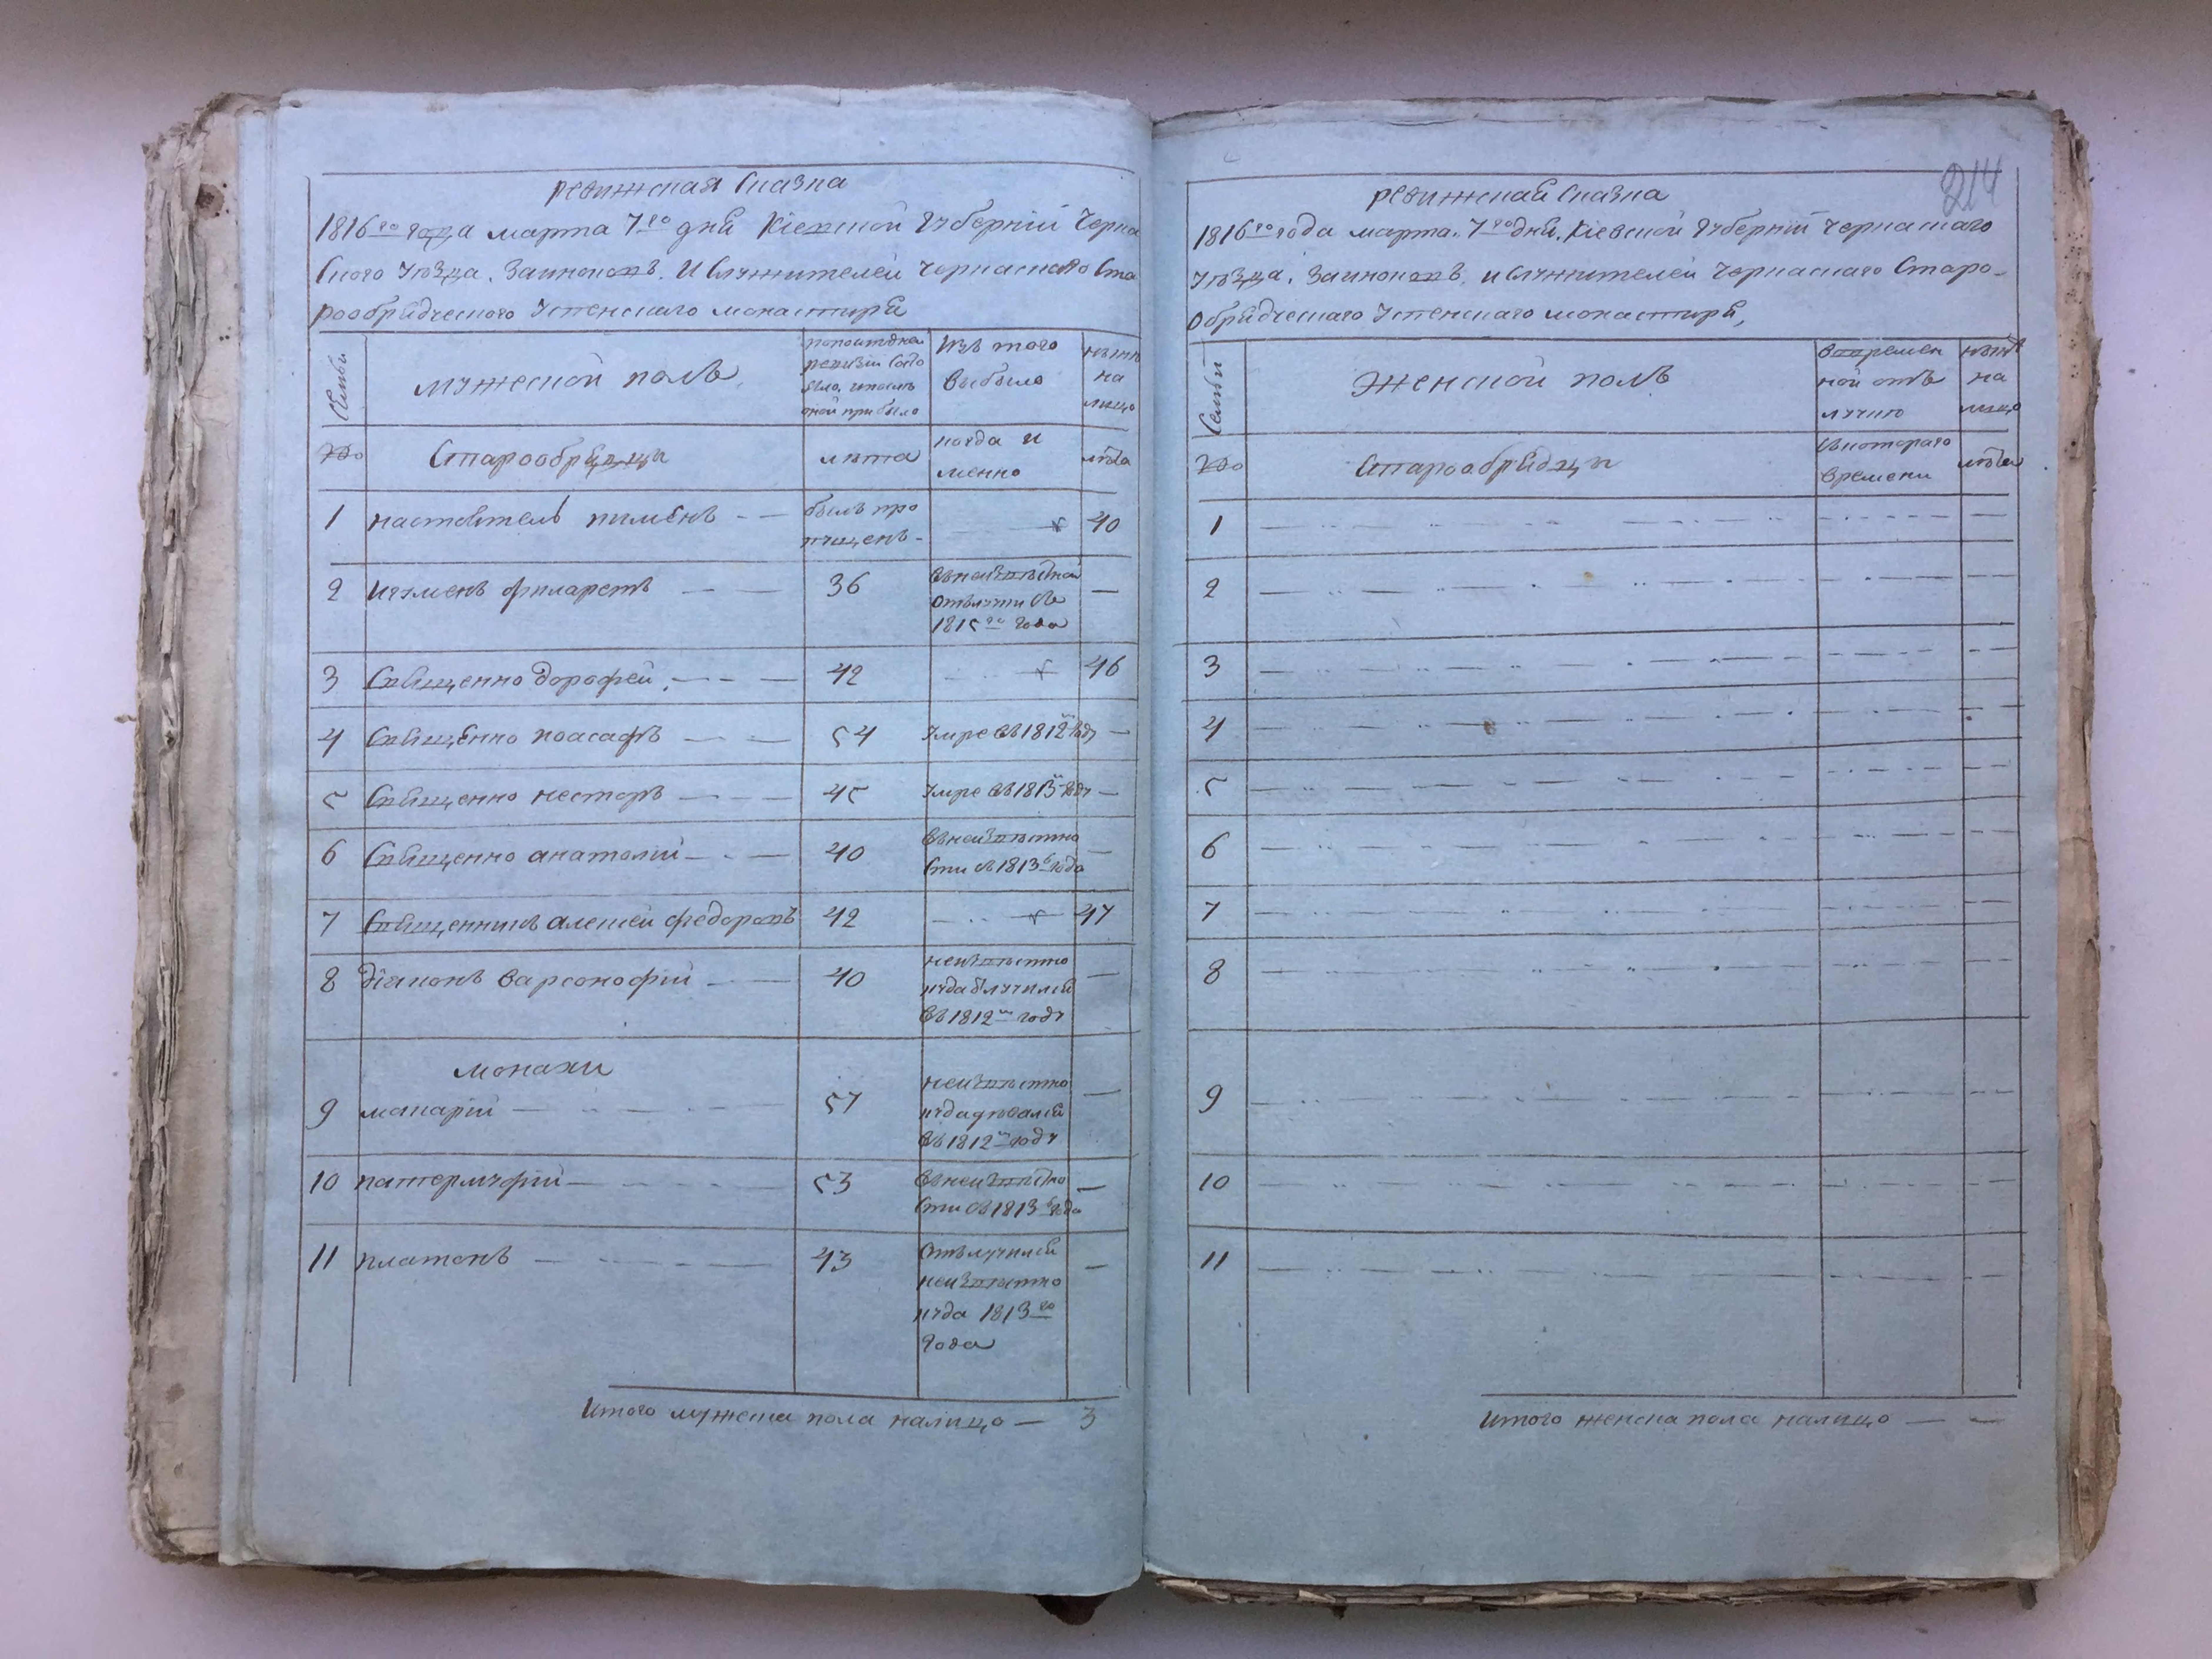 ревижская сказка
1816го года марта 7го дня Кіевской губерніи Черка
ского уѣзда. Заиноковъ. И служителей черкаского Ста
рообрядческого успенского монастыря
семьи
мужеской полъ
попоследней
ревизіи состо
яло, и после
оной прибыло
Изъ того
выбыло
ныне
на
лицо
№о
Старообрядцы
лѣта
когда и
менно
лѣта
1 настоятель пименъ
былъ про
пущенъ
40
2 игуменъ филаретъ
36
въ неизвѣстной
отлучки съ
1815го года
3 Священно дорофей
42
46
4 Священно иоасафъ
54
умре въ 1812м году
5 Священно несторъ
45
умре въ 1813м году
6 Священно анатолий
40
въ неизвѣстно
сти съ 1813го года
7 Священникъ алексей федоровъ
42
47
8 діяконъ варсонофий
40
неизвѣстно
куда отлучился
въ 1812м году
монахи
9 макарий
57
неизвѣстно
куда девался
въ 1812м году
10 патермуфий
53
въ неизвѣстно
сти съ 1813го года
11 платонъ
43
отлучился
неизвѣстно
куда 1813го
года
Итого мужеска пола налицо — 3
214
ревижская сказка
1816го года марта. 7го дня. Кіевской губерніи черкаского
уѣзда. Заиноковъ. и служителей черкаского Старо-
обрядческаго успенского монастыря,
Семьи
Женской полъ
во времен
ной отъ
лучке
ныне
на
лицо
№о
Старообрядцы
съ котораго
времени
лѣта
1
2
3
4
5
6
7
8
9
10
11
Итого женска пола налицо — —